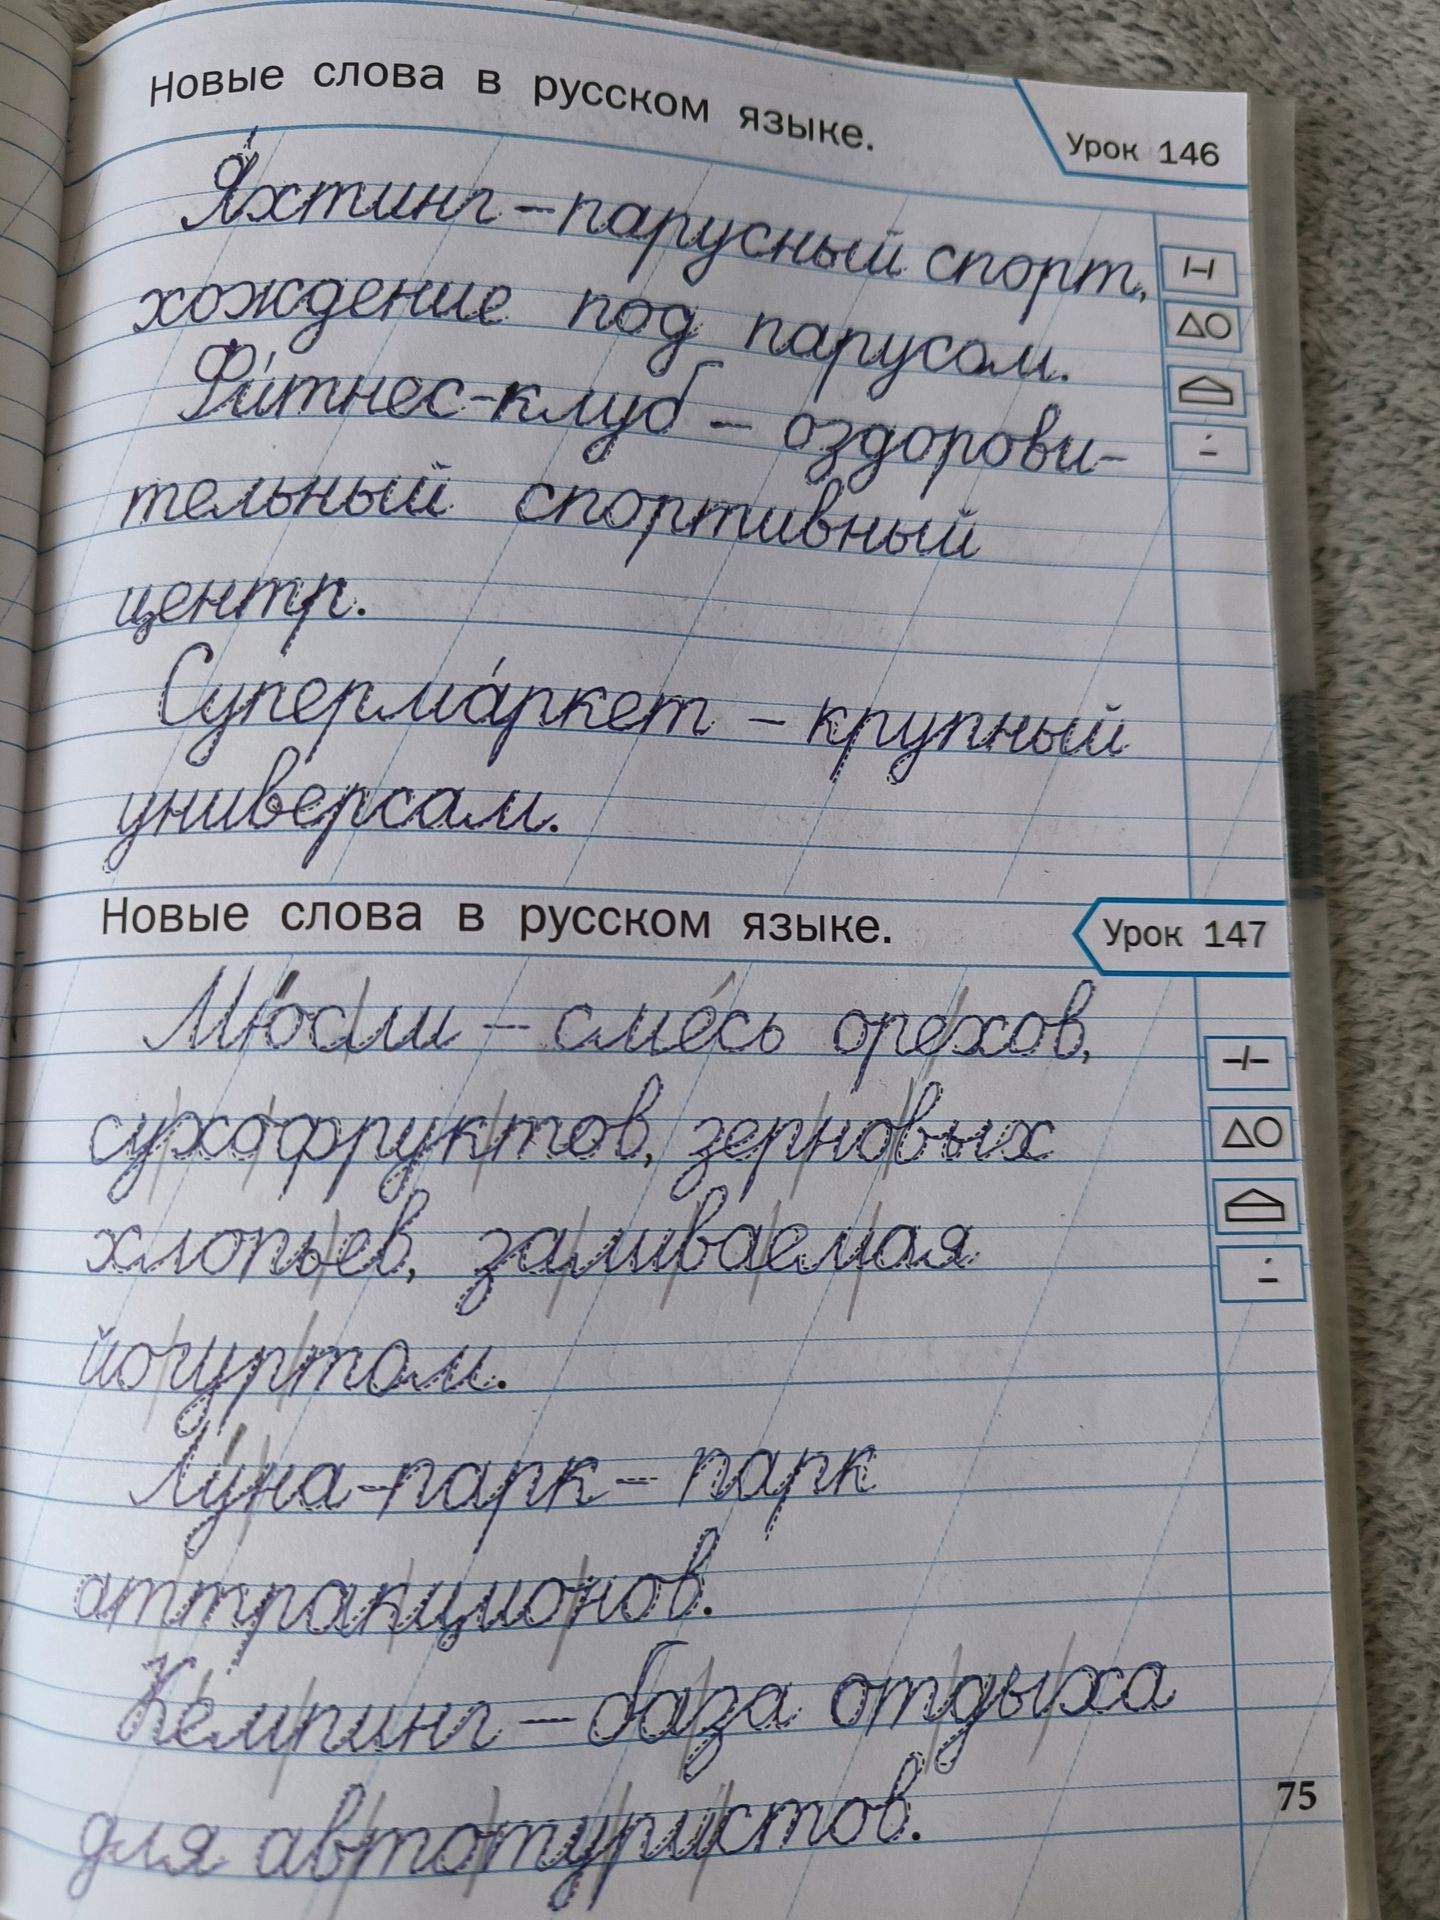 Новые слова в русском языке.
Урок 146
Я́хтинг – парусный спорт,
хождение под парусом.
Фи́тнес-клуб – оздорови-
тельный спортивный
центр.
Суперма́ркет – крупный
универсам.
Новые слова в русском языке.
Урок 147
Мю́сли – сме́сь орехов,
сухофруктов, зерновых
хлопьев, заливаемая
йогуртом.
Лу́на-парк – парк
аттракционов.
Ке́мпинг – база отдыха
для автотуристов.
75